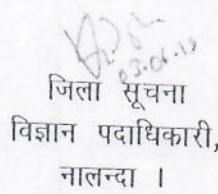 03.06.19
जिला सूचना
विज्ञान पदाधिकारी,
नालन्दा ।